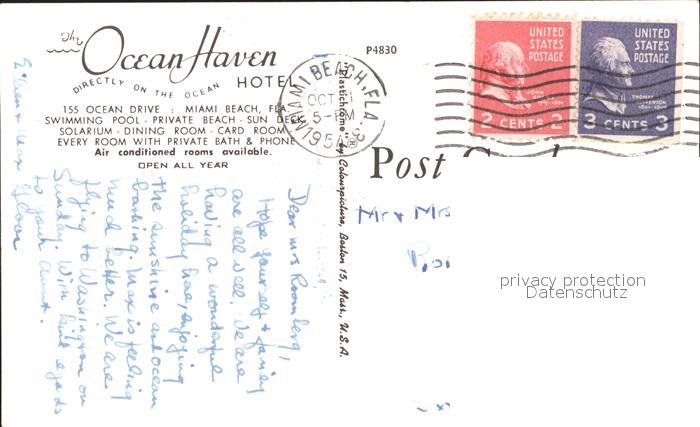 The Ocean Haven
HOTEL
DIRECTLY ON THE OCEAN
155 OCEAN DRIVE : MIAMI BEACH, FLA.
SWIMMING POOL - PRIVATE BEACH - SUN DECK
SOLARIUM - DINING ROOM - CARD ROOM
EVERY ROOM WITH PRIVATE BATH & PHONE
Air conditioned rooms available.
OPEN ALL YEAR
P4830
MIAMI BEACH, FLA.
OCT
5-PM
195
"Plastichrome" ® by Colourpicture, Boston 15, Mass., U.S.A.
UNITED
STATES
POSTAGE
JOHN
2 CENTS 2
UNITED
STATES
POSTAGE
THOMAS
JEFFERSON
3 CENTS 3
Post
Dear Mrs Roomberg,
Hope yourself & family
are all well. We are
having a wonderful
holiday here, enjoying
the sunshine and ocean
bathing. Max is feeling
much better. We are
flying to Washington on
Sunday. With kind regards
to your Aunt.
Max
Mr & Mrs
privacy protection
Datenschutz